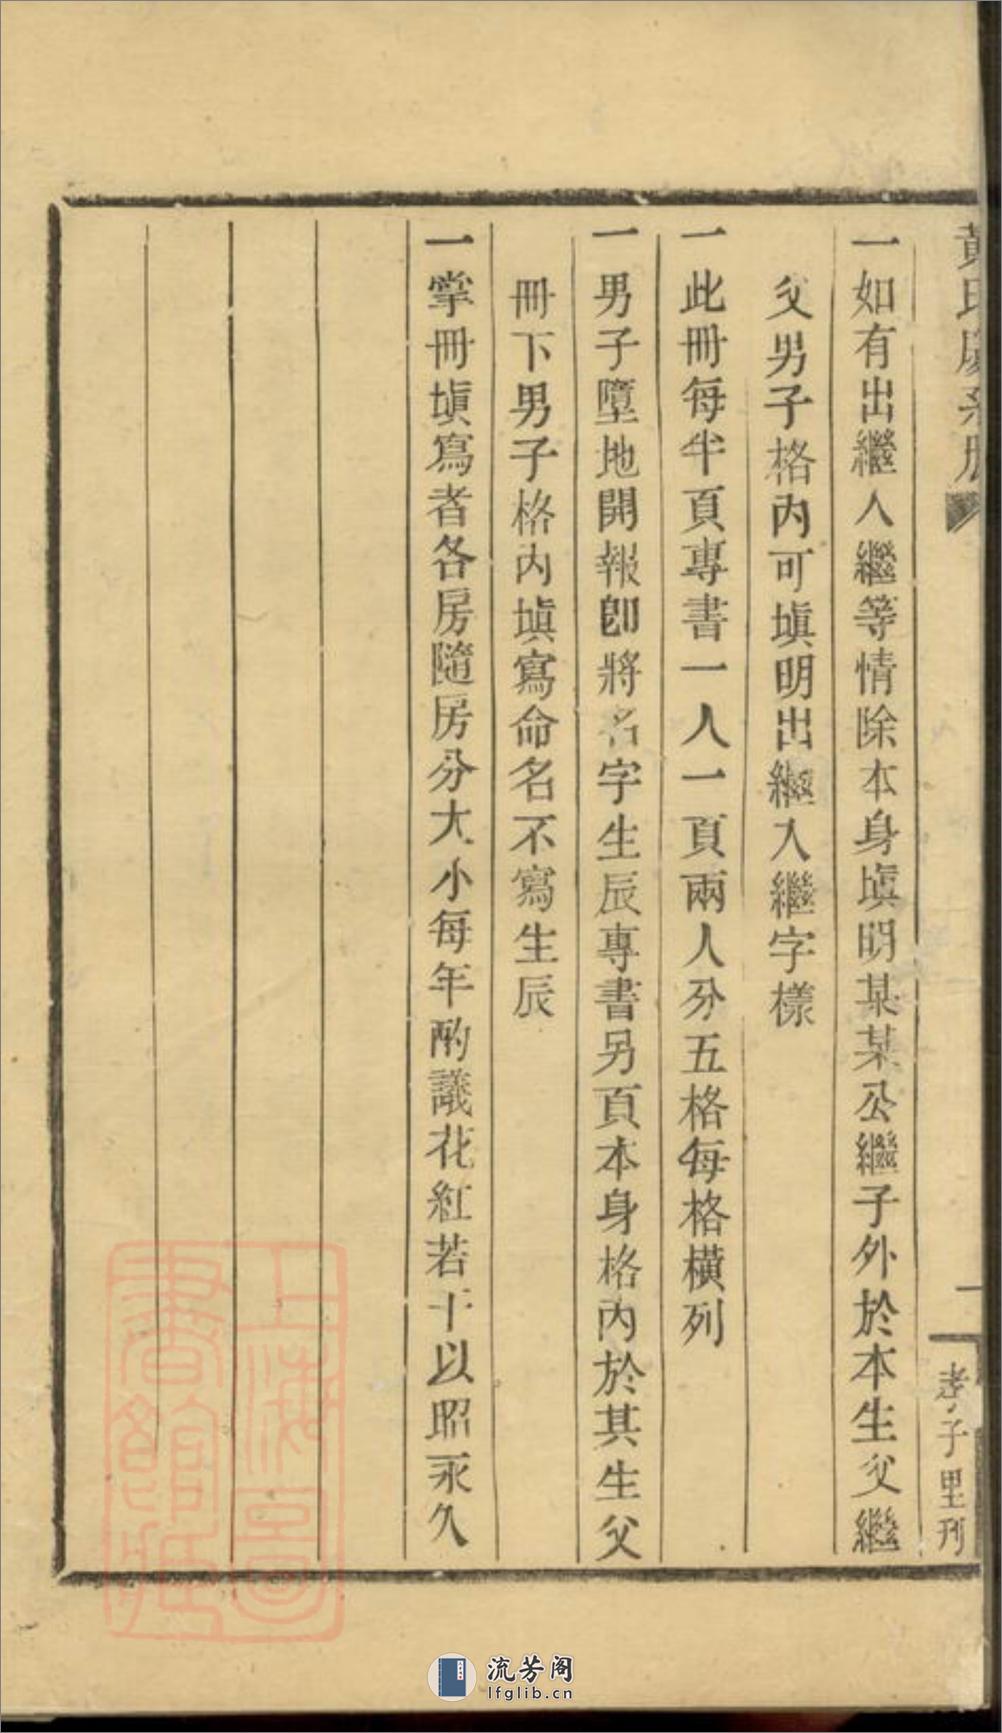 黃氏慶系册
一
孝子里刊
一如有出繼入繼等情除本身塡明某某公繼子外於本生父繼
父男子格內可塡明出繼入繼字樣
一此冊每半頁專書一人一頁兩人分五格每格橫列
一男子墮地開報卽將名字生辰專書另頁本身格內於其生父
冊下男子格內塡寫命名不寫生辰
一掌冊塡寫者各房隨房分大小每年酌議花紅若干以昭永久
上海圖書館藏
流芳阁
lfglib.cn